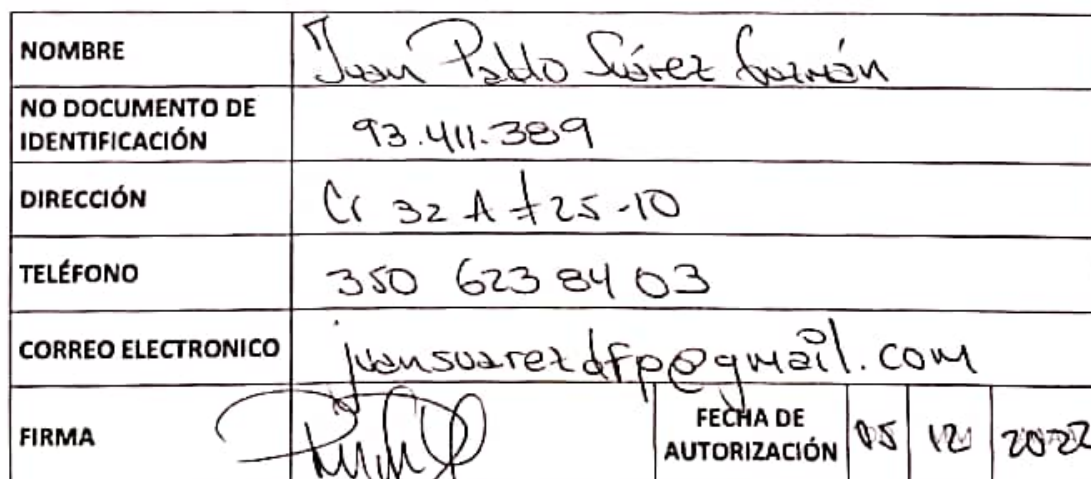 NOMBRE Juan Pablo Suárez Guzmán
NO DOCUMENTO DE
IDENTIFICACIÓN 93.411.389
DIRECCIÓN Cr 32 A #25-10
TELÉFONO 350 623 84 03
CORREO ELECTRONICO juansuarezdfp@gmail.com
FIRMA
FECHA DE
AUTORIZACIÓN 05 12 2022